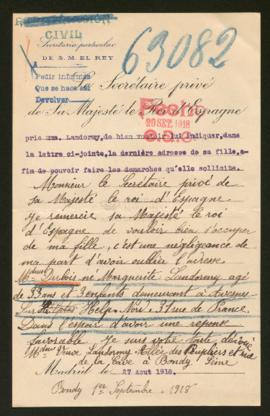 CIVIL
63082
Secretaria particular
DE S. M. EL REY
Pedir informes
Que se haga así
Devolver
Le Secrétaire privé
de Sa Majesté le Roi d'Espagne
20 SEP. 1918
prie Mme. Landormy, de bien vouloir lui indiquer, dans
la lettre ci-jointe, la dernière adresse de sa fille, a-
fin de pouvoir faire les demarches qu'elle sollicite.
Monsieur le Secrétaire privé de
Sa Majesté le roi d'Espagne
Je remercie sa Majesté le roi
d'Espagne de vouloir bien s'occuper
de ma fille, c'est une négligeance de
ma part d'avoir oublier l'adresse
née Marguerite Landormy agé
de 33 ans et 3 enfants demeurant à Avesnes
sur Helpe Nord rue de France.
Dans l'espoir d'avoir une reponse
favorable Je suis votre
Mme Veuve Landormy Allée des
à Bondy Seine
Madrid le 27 Aout 1918.
Bondy 1er Septembre 1918